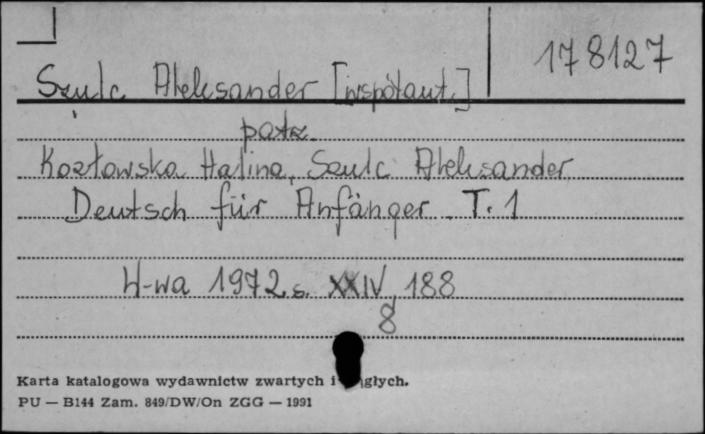 178127
Szulc Aleksander [współaut.]
patrz
Kozłowska Halina, Szulc Aleksander
Deutsch für Anfänger. T. 1
W-wa 1972 s. XXIV, 188
8
Karta katalogowa wydawnictw zwartych i głych.
PU — B144 Zam. 849/DW/On ZGG — 1991